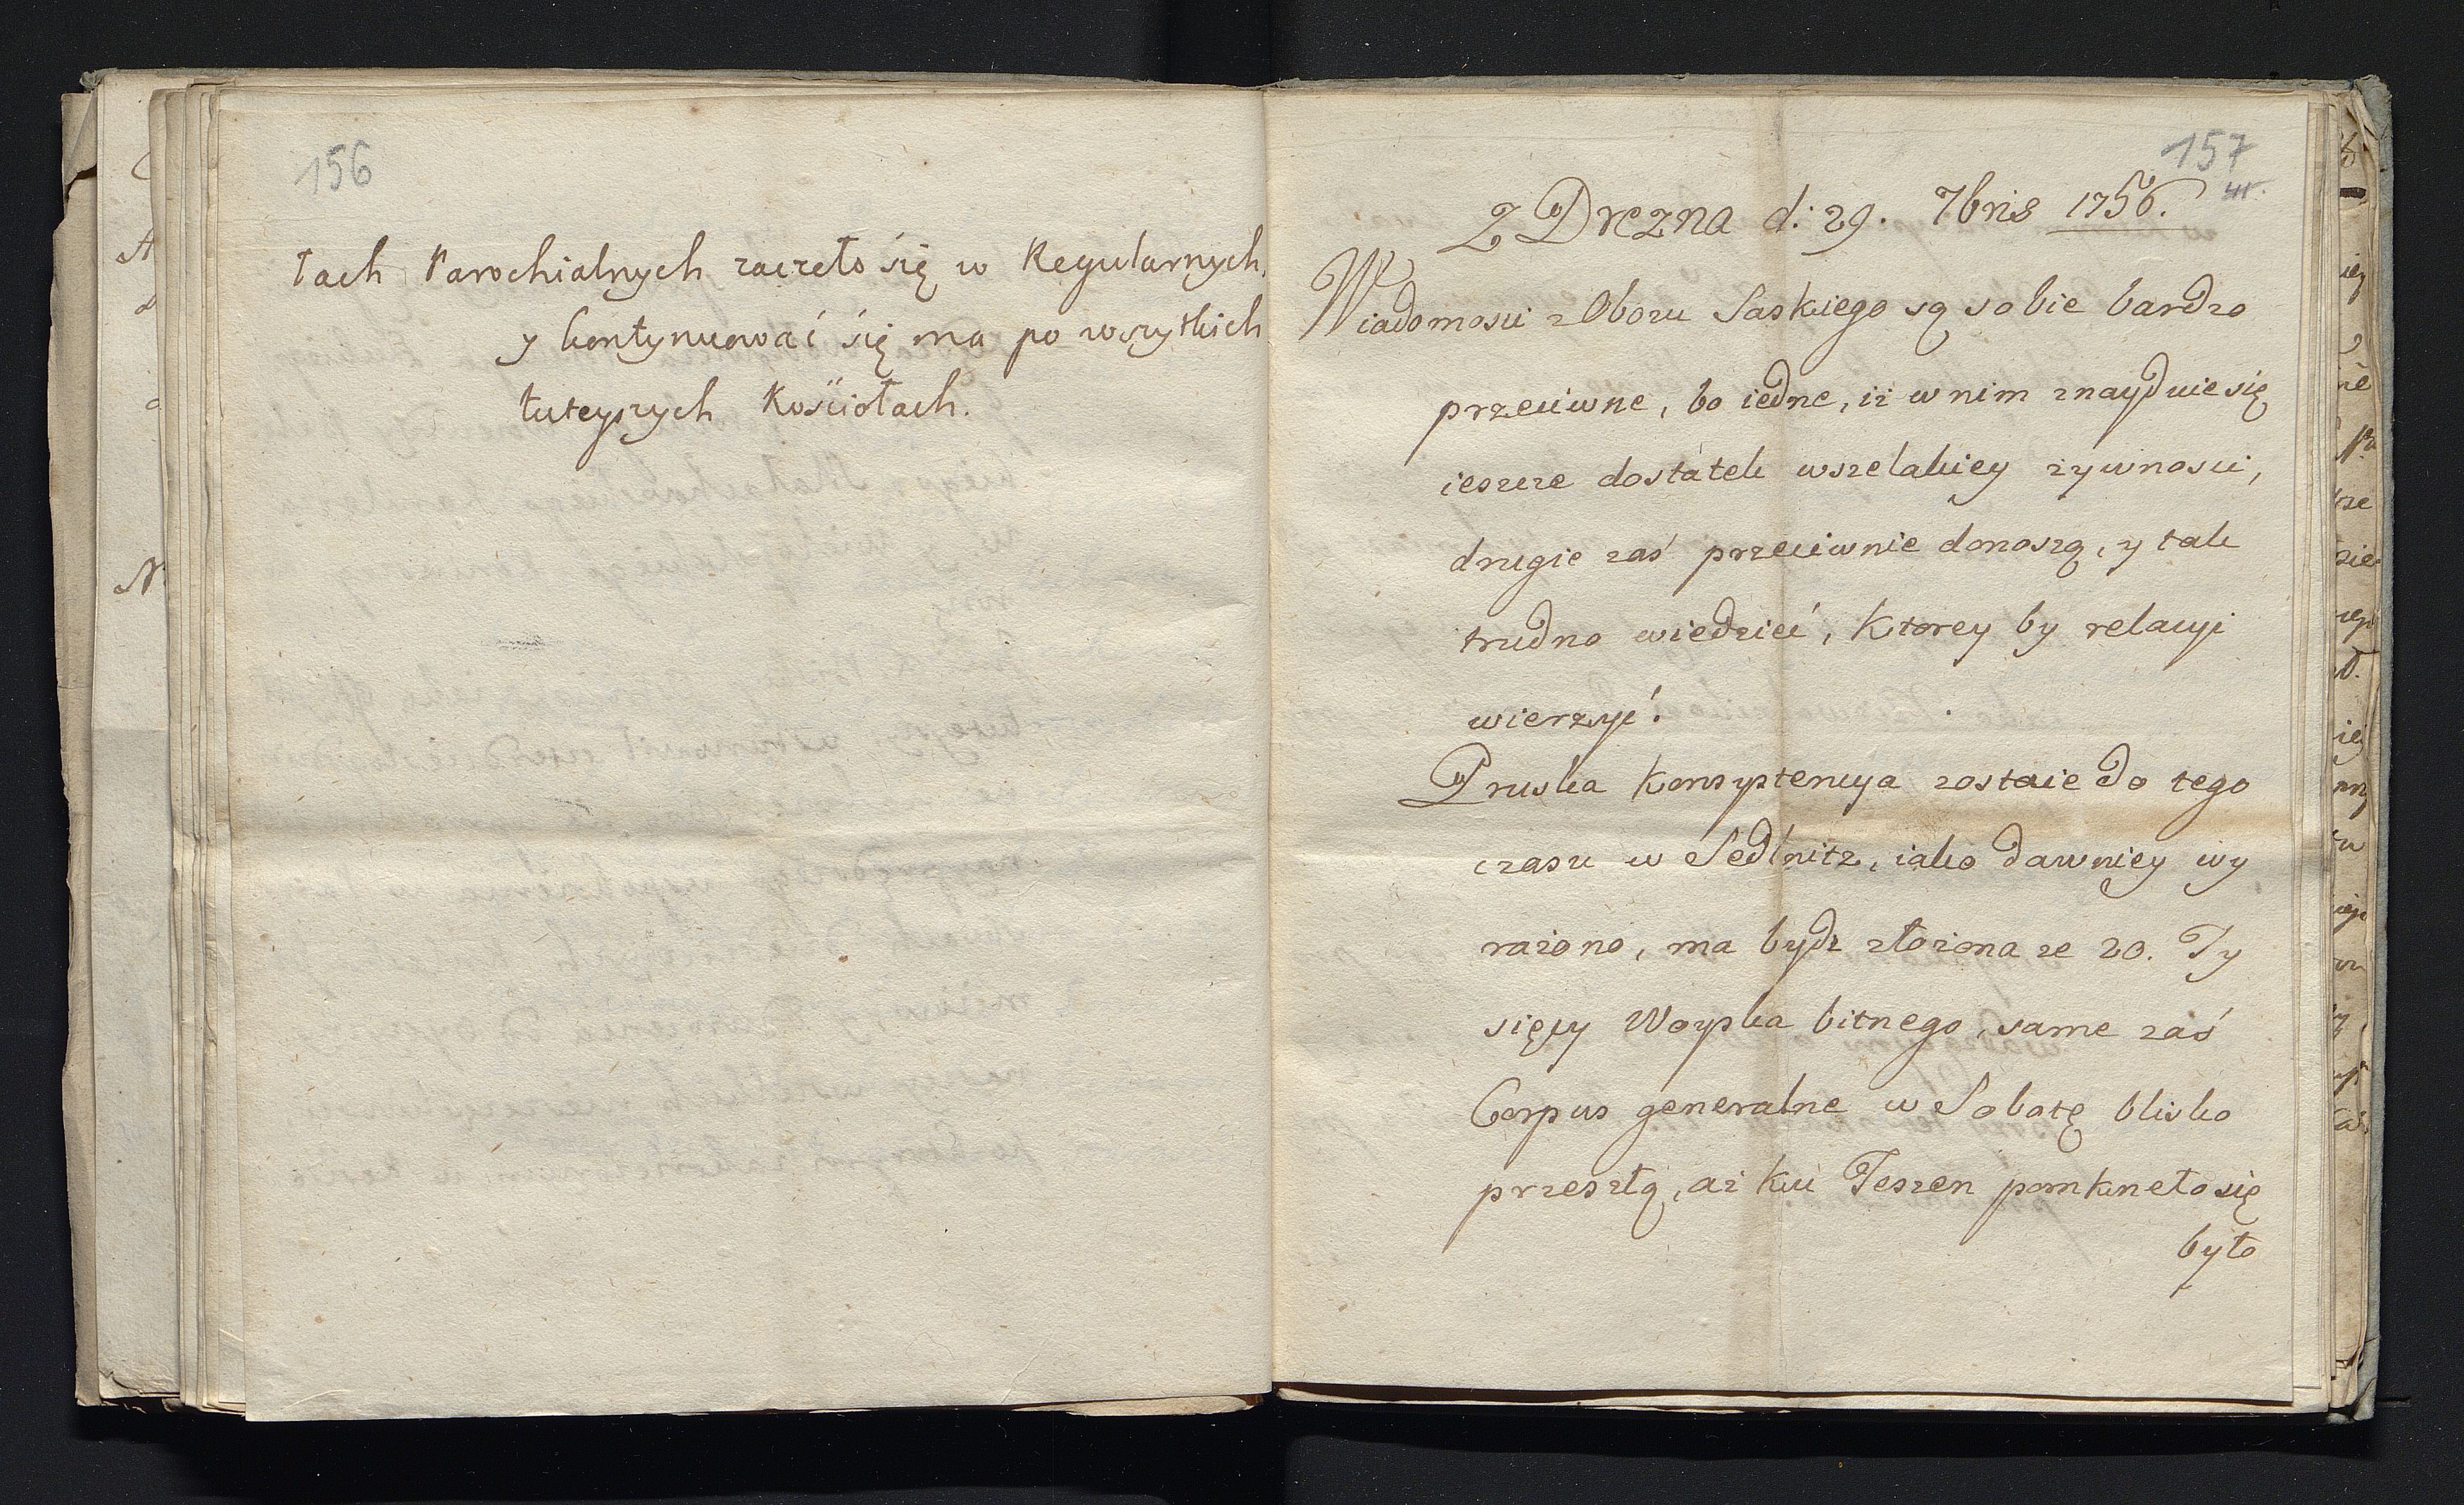 156
łach Parochialnych zaczeło się w Regularnych,
y kontynuować się ma po wszytkich
tuteyszych Kościołach.
157
Z Drezna d: 29. 7bris 1756.
Wiadomosci z Obozu Saskiego są sobie bardzo
przeciwne, bo iedne, iż w nim znayduie się
ieszcze dostatek wszelakiey zywnosci,
drugie zaś przeciwnie donoszą, y tak
trudno wiedzieć, Ktorey by relacyi
wierzyć.
Pruska Konsystencya zostaie do tego
czasu w Sedlnitz, iako dawniey wy
rażono, ma bydz złożona ze 20. Ty
sięcy Woyska bitnego, same zaś
Corpus generalne w Sobotę blisko
przeszłą, aż ku Teszen pomkneło się
było